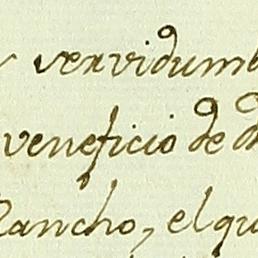 servidumb
veneficio de d
Rancho, el qu